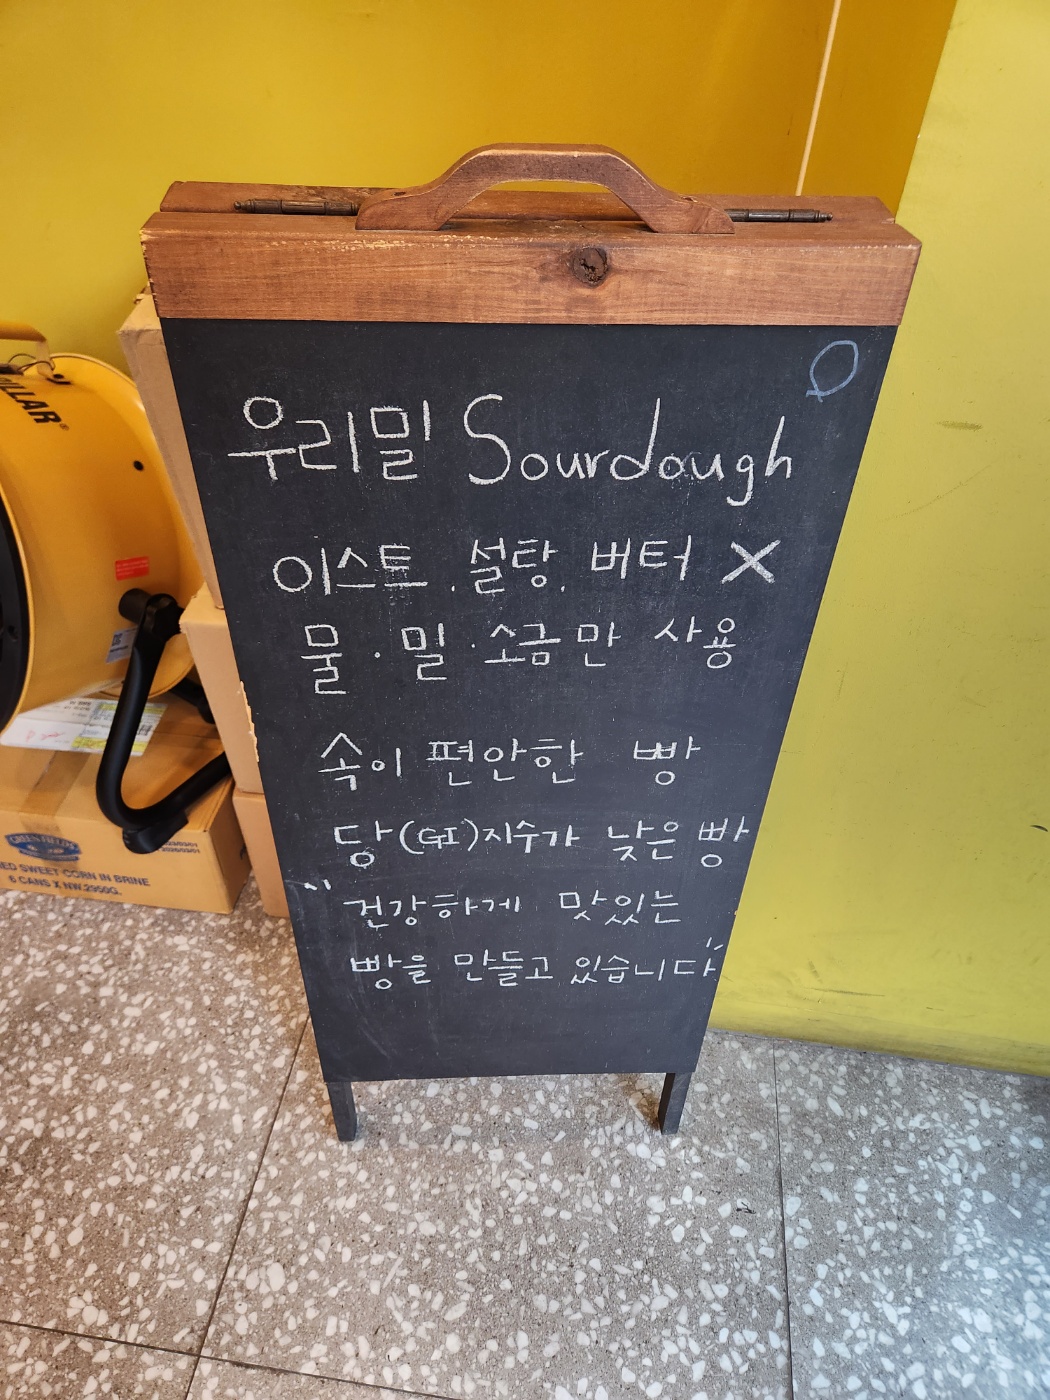 우리밀 Sourdough
이스트.설탕.버터 X
물·밀·소금만 사용
속이 편안한 빵
당(GI)지수가 낮은 빵
"건강하게 맛있는
빵을 만들고 있습니다"
LLAR®
GREENFIELDS
ED SWEET CORN IN BRINE
6 CANS X NW.2950G.